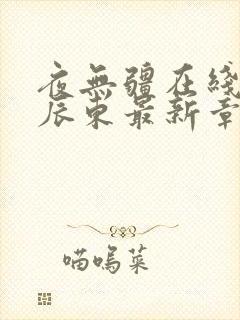 夜無疆在綫
辰東最新章
喵嗚菜